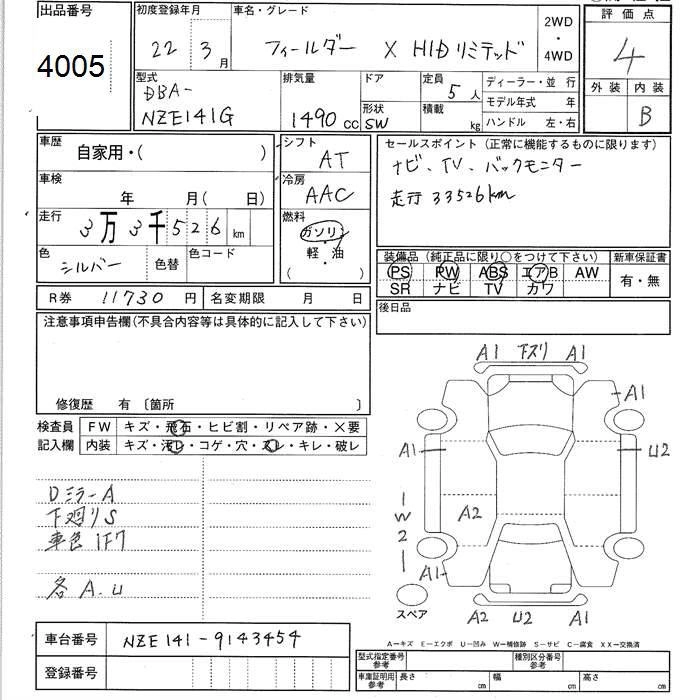 出品番号
4005
初度登録年月
22 3月
車名・グレード
フィールダー X HIDリミテッド
2WD
・
4WD
評価点
4
外装 内装
B
型式
DBA-
NZE141G
排気量
1490cc
ドア
形状
SW
定員
5人
積載
kg
ディーラー・並行
モデル年式 年
ハンドル 左・右
車歴
自家用・( )
シフト
AT
セールスポイント(正常に機能するものに限ります)
ナビ、TV、バックモニター
走行33526km
車検
年 月( 日)
冷房
AAC
走行
3万3千526km
燃料
ガソリン
・
軽・油
( )
色
シルバー
色替
色コード
装備品(純正品に限り○をつけて下さい)
PS PW ABS エアB AW
SR ナビ TV カワ
新車保証書
有・無
R券 11730円
名変期限 月 日
後日品
注意事項申告欄(不具合内容等は具体的に記入して下さい)
修復歴 有 〔箇所 〕
検査員
記入欄
FW キズ・飛石・ヒビ割・リペア跡・X要
内装 キズ・汚レ・コゲ・穴・スレ・キレ・破レ
DミラーA
下廻りS
車色1F7
各A.U
A1 下スリ A1
A1
A1
U2
A2
W2
A1
スペア
A2 U2 A1
A―キズ E―エクボ U―凹み W―補修跡 S―サビ C―腐食 XX―交換済
車台番号 NZE141-9143454
登録番号
型式指定番号
参考
種別区分番号
参考
車庫証明用
参考
長さ cm
幅 cm
高さ cm